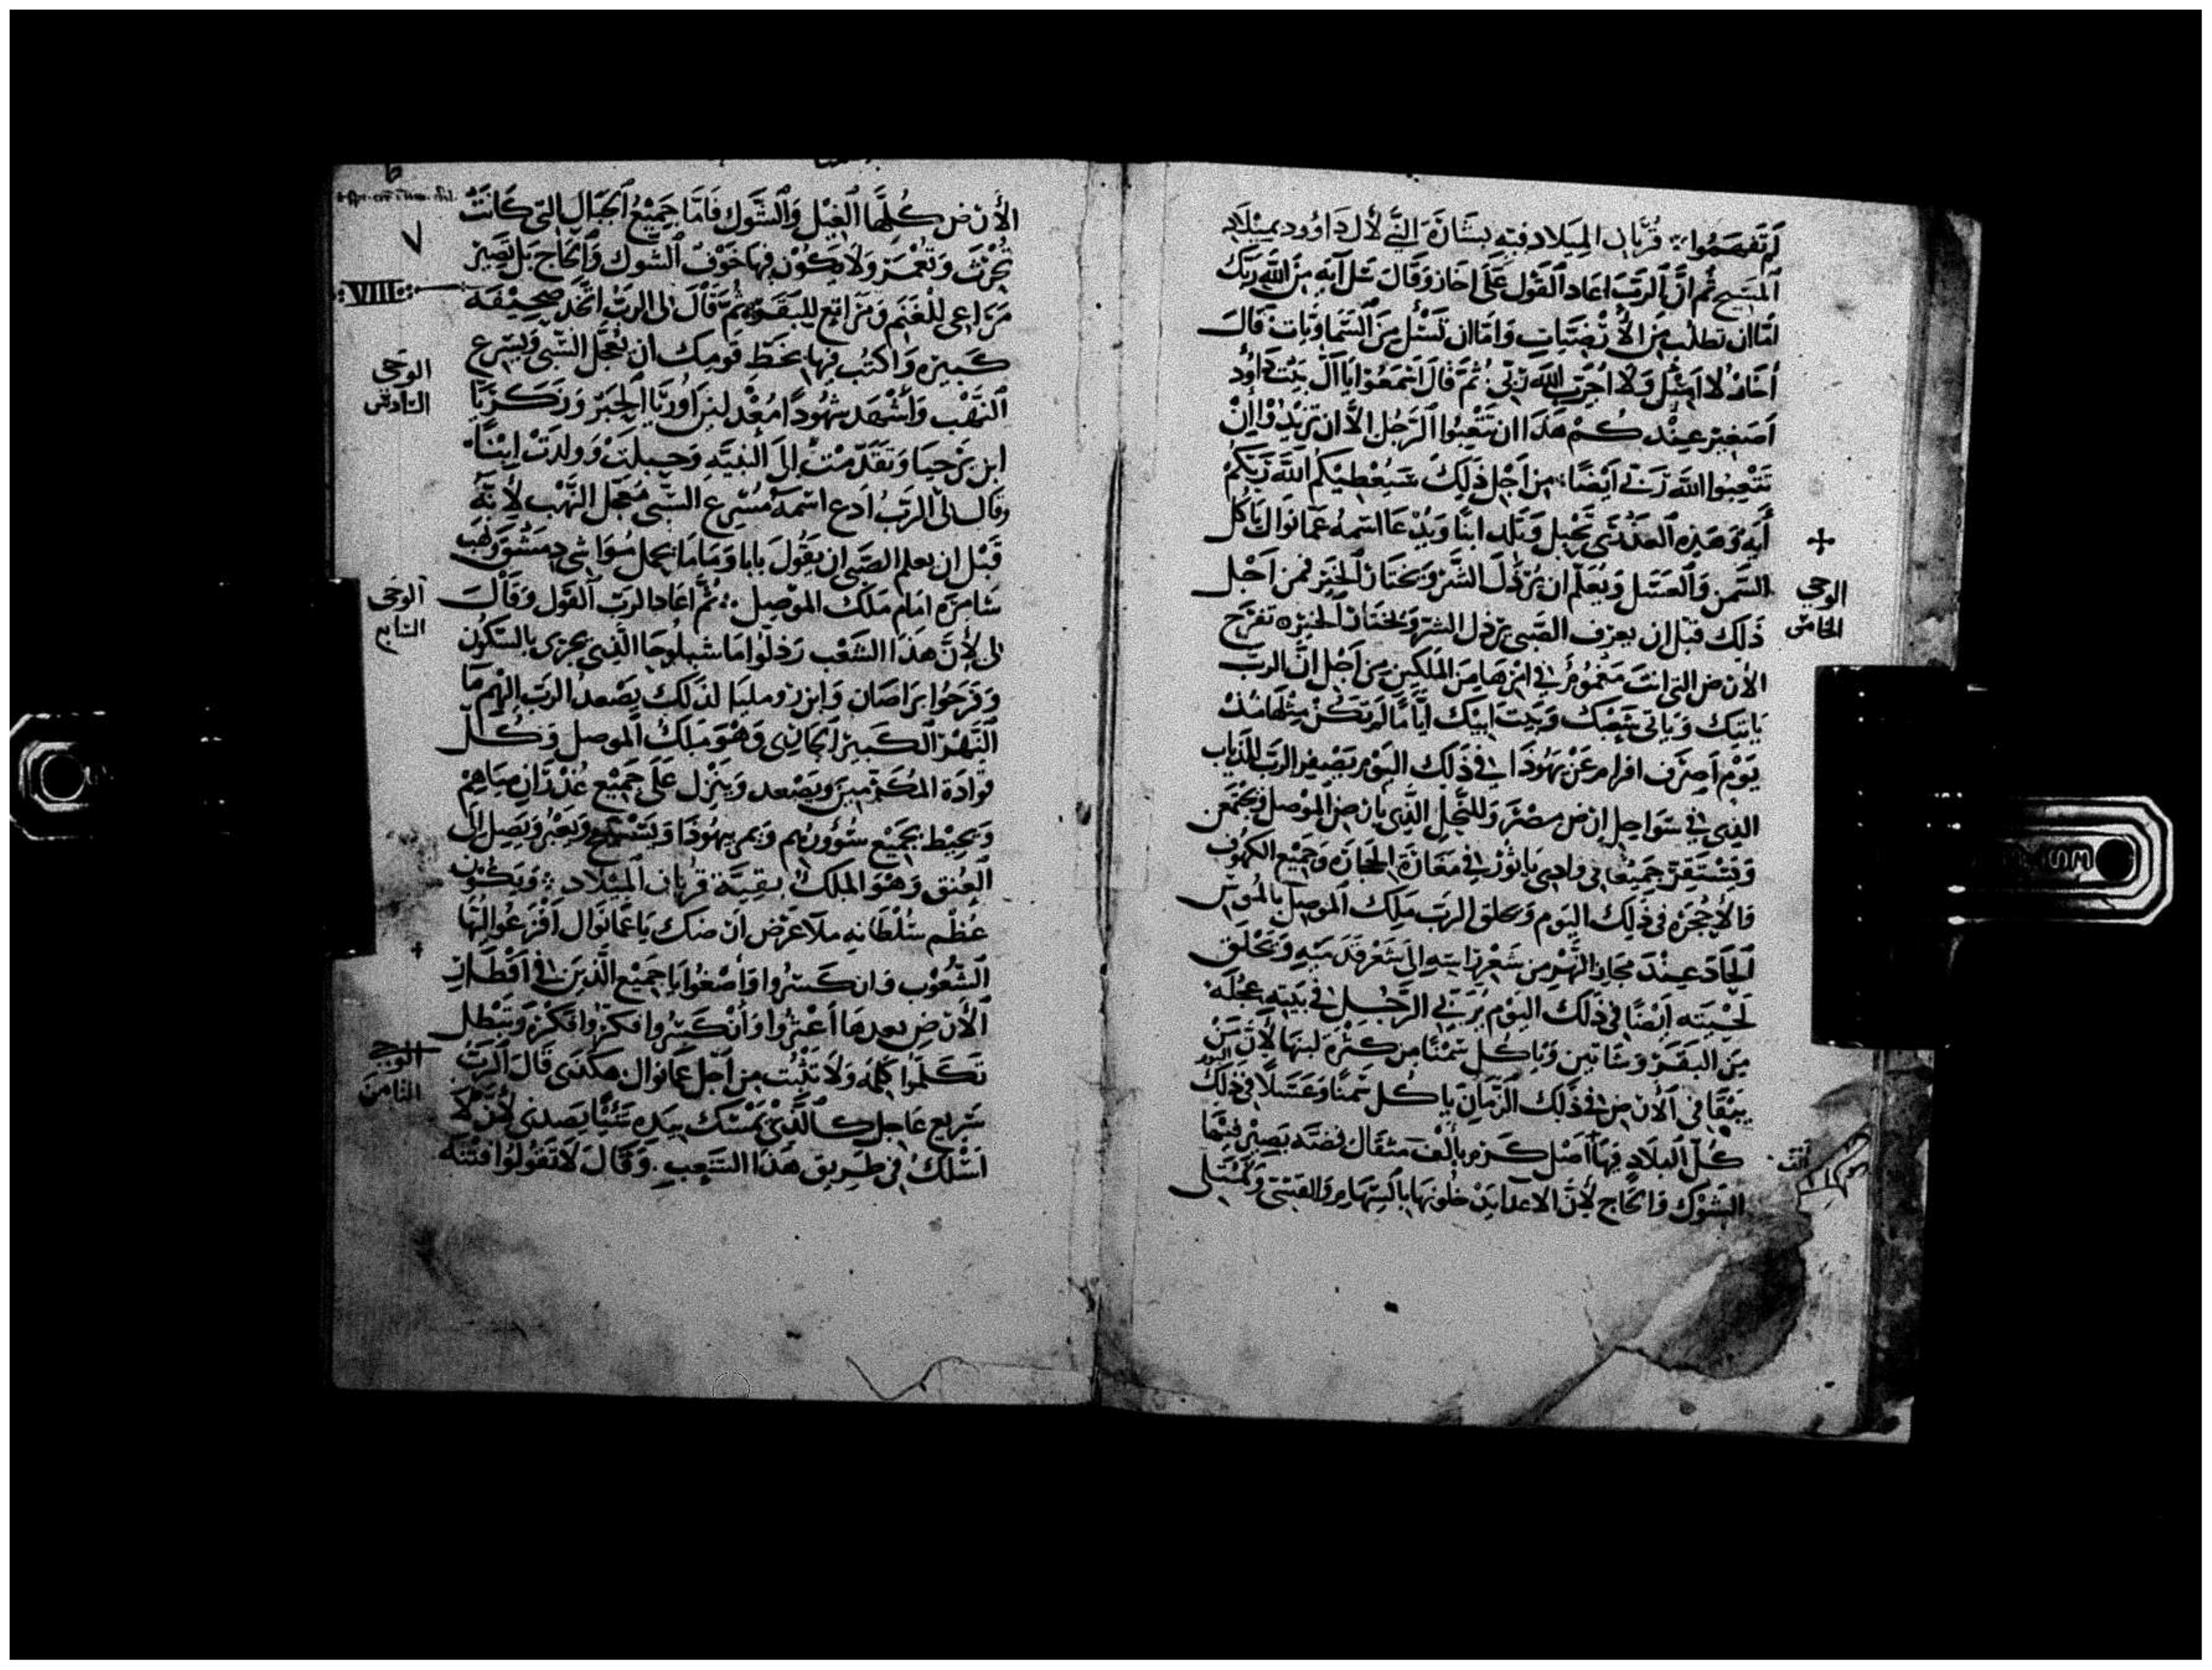 لم تفهموا ٠: قُربان الميلاد فيه بشارة النبي لال داوُود بميلاد
المسيح ثم انّ الرّبّ اعاد القول على احاز وقال سَل آيه مِن الله ربّك
امّا ان تطلب من الأرضيّات وامّا ان تسئل من السّماويّات قال
احاز لا اسئل ولا اجرّب الله ربّي ثمّ قال اسمعوا يا آل بيت داوُد
اصغير عندكم هَذا ان تتعبوا الرّجل الاّ ان تريدوا ان
تتعبوا الله ربّي ايضًا من اجل ذلك سيُعطيكم الله ربّكم
أيه وَهذه العذرى تحبل وتلد ابنًا ويُدعا اسمه عمانوال ياكل
السّمن والعسَل ويعلم ان يُرذل الشّر ويختار الخير فمن اجل
ذلك قبل ان يعرف الصّبي يرذل الشر ويختار الخيره تفرح
الأرض التي انت مغموم في امرها من الملكين من اجل انّ الربّ
ياتيك وياتي شعبك وبيت ابيك ايّامًا لم تكن مثلها منذ
يوم اصرف افرام عن يهُوذا في ذلك اليوم يصفر الربّ للذباب
الذي في سواحل ارض مصر وللنّحل الّذي بارض الموصل وتجمعن
وتستقرّ جميعًا في وادي ياثور في مغارة الحجارة وجميع الكهوف
والاحجرَه في ذلك اليوم ويحلق الربّ ملك الموصل بالموس
الحادّ عند مجاز النّهر من شعر راسه الى شعر قدميه ويحلق
لحيته ايضًا في ذلك اليوم يُربّي الرّجل في بيته عجلَه
من البقر وشاتين وياكل سمنًا من كثرة لبنها لأنّ من
يبقا في الأرض في ذلك الزمان ياكل سَمنًا وعسَلاً في ذلك اليوم
كلّ البلاد فيها اصل كرم بالف مثقال فضه يصير فيها
الشوك والحاج لأنّ الاعدا يدخلونها باسهامهم والقسى وتمتلى
الوحي
الخامس
انت
الأرض كلها الغيل والشوك فامّا جميع الجبال التي كانت
تحرث وتعمر ولا يكون فيها خوف الشوك والحاج بل تصير
مراعي للغنم ومراتع للبقر ثم قال لى الربّ اتّخذ صحيفه
كبيره واكتب فيها بخط قومك ان يعجّل السّبي ويسرع
النّهب واشهد شهُودًا اوريّا الحبر وزكريّا
ابن برحيا وتقدّمت الى النبيّه وحبلت وولدت ابنًا
وقال لي الربّ ادع اسمه مُسرع السّبي مُعجل النّهب لأنّه
قبل ان يعلم الصّبي ان يقول بابا وماما يحمل دمشق ونهب
شامره امام ملك الموصل ٠: ثمّ اعاد الربّ القول وقال
لى لأنّ هَذا الشعب رذلوا ما شيلوحا الّذي يجرى بالسّكون
وفرحوا براصان وابن روُمليا لذلك يصعد الربّ اليهم ما
النّهر الكبير الجارى وهو ملك الموصل وكل
قوّاده المكرّمين ويصعد وينزل على جميع غدران مياههم
ويحيط بجميع سُوُورهم ويمر بيهُوذا ويعبُر ويصل الى
العُنق وهو الملك بقيّة قربان الميلاد ٠: ويكون
عُظم سُلطانه ملا عرض ارضك يا عمانوال افزعوا ايّها
الشعُوب وانكسروا واصغُوا يا جميع الّذين في اقطار
الأرض بعدها اعثروا وانكسروا افكروا فكر ويبطل
تكلموا كلمه ولا تثبت من اجل عمانوال هكذى قال الربّ
سَريع عاجل كالّذي يمسك بيده شيًا يصدنى لأنّ لا
اسلك في طريق هَذا الشعب ٠ وقال لا تقولوا فتنه
VIII
الوحي
السّادس
الوحي
السّابع
الوحي
الثامن